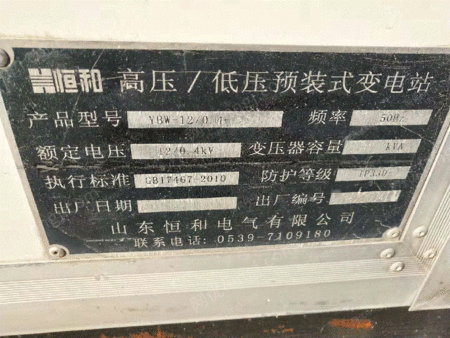 恒和 高压/低压预装式变电站
产品型号 YBW-12/0.4- 频率 50Hz
额定电压 12/0.4kV 变压器容量 kVA
执行标准 GB17467-2010 防护等级 IP33D
出厂日期 出厂编号
山东恒和电气有限公司
联系电话: 0539-7109180